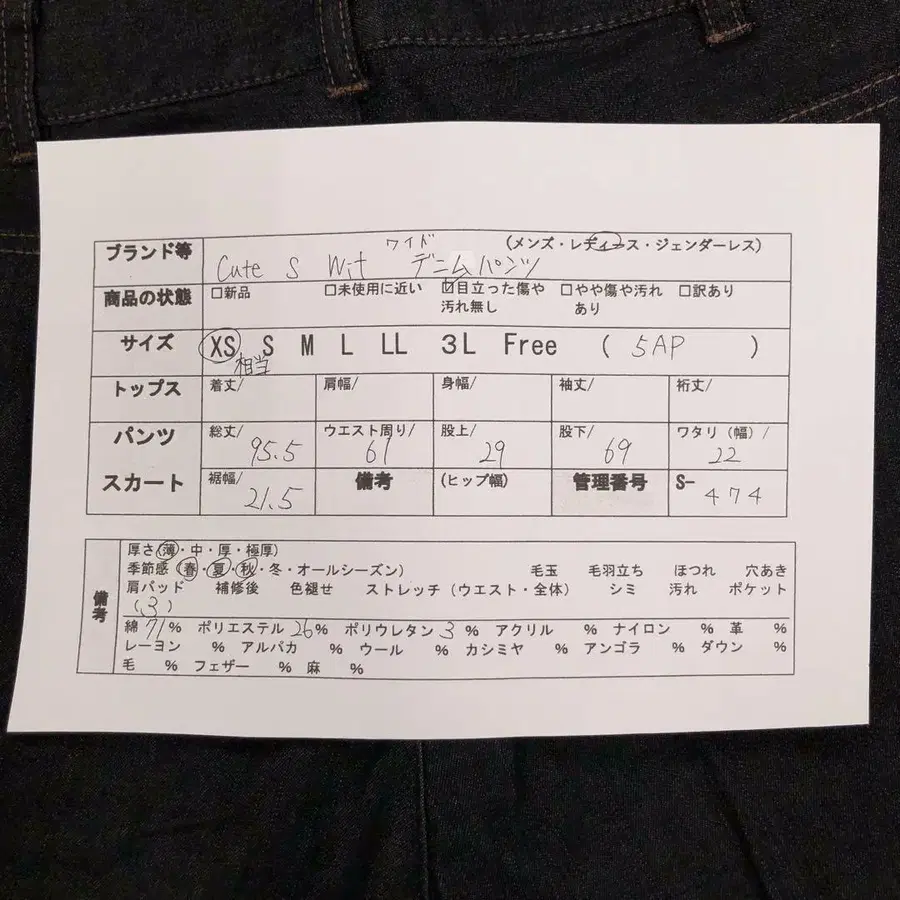 ブランド等 Cute S Wit ワイド デニムパンツ (メンズ・レディース・ジェンダーレス)
商品の状態 □新品 □未使用に近い ☑目立った傷や汚れ無し □やや傷や汚れあり □訳あり
サイズ XS S M L LL 3L Free ( 5AP )
相当
トップス 着丈/ 肩幅/ 身幅/ 袖丈/ 裄丈/
パンツ 総丈/ 95.5 ウエスト周り/ 61 股上/ 29 股下/ 69 ワタリ(幅)/ 22
スカート 裾幅/ 21.5 備考 (ヒップ幅) 管理番号 S-474
備考
厚さ(薄・中・厚・極厚)
季節感(春・夏・秋・冬・オールシーズン) 毛玉 毛羽立ち ほつれ 穴あき
肩パッド 補修後 色褪せ ストレッチ(ウエスト・全体) シミ 汚れ ポケット
(3)
綿 71% ポリエステル 26% ポリウレタン 3% アクリル % ナイロン % 革 %
レーヨン % アルパカ % ウール % カシミヤ % アンゴラ % ダウン %
毛 % フェザー % 麻 %